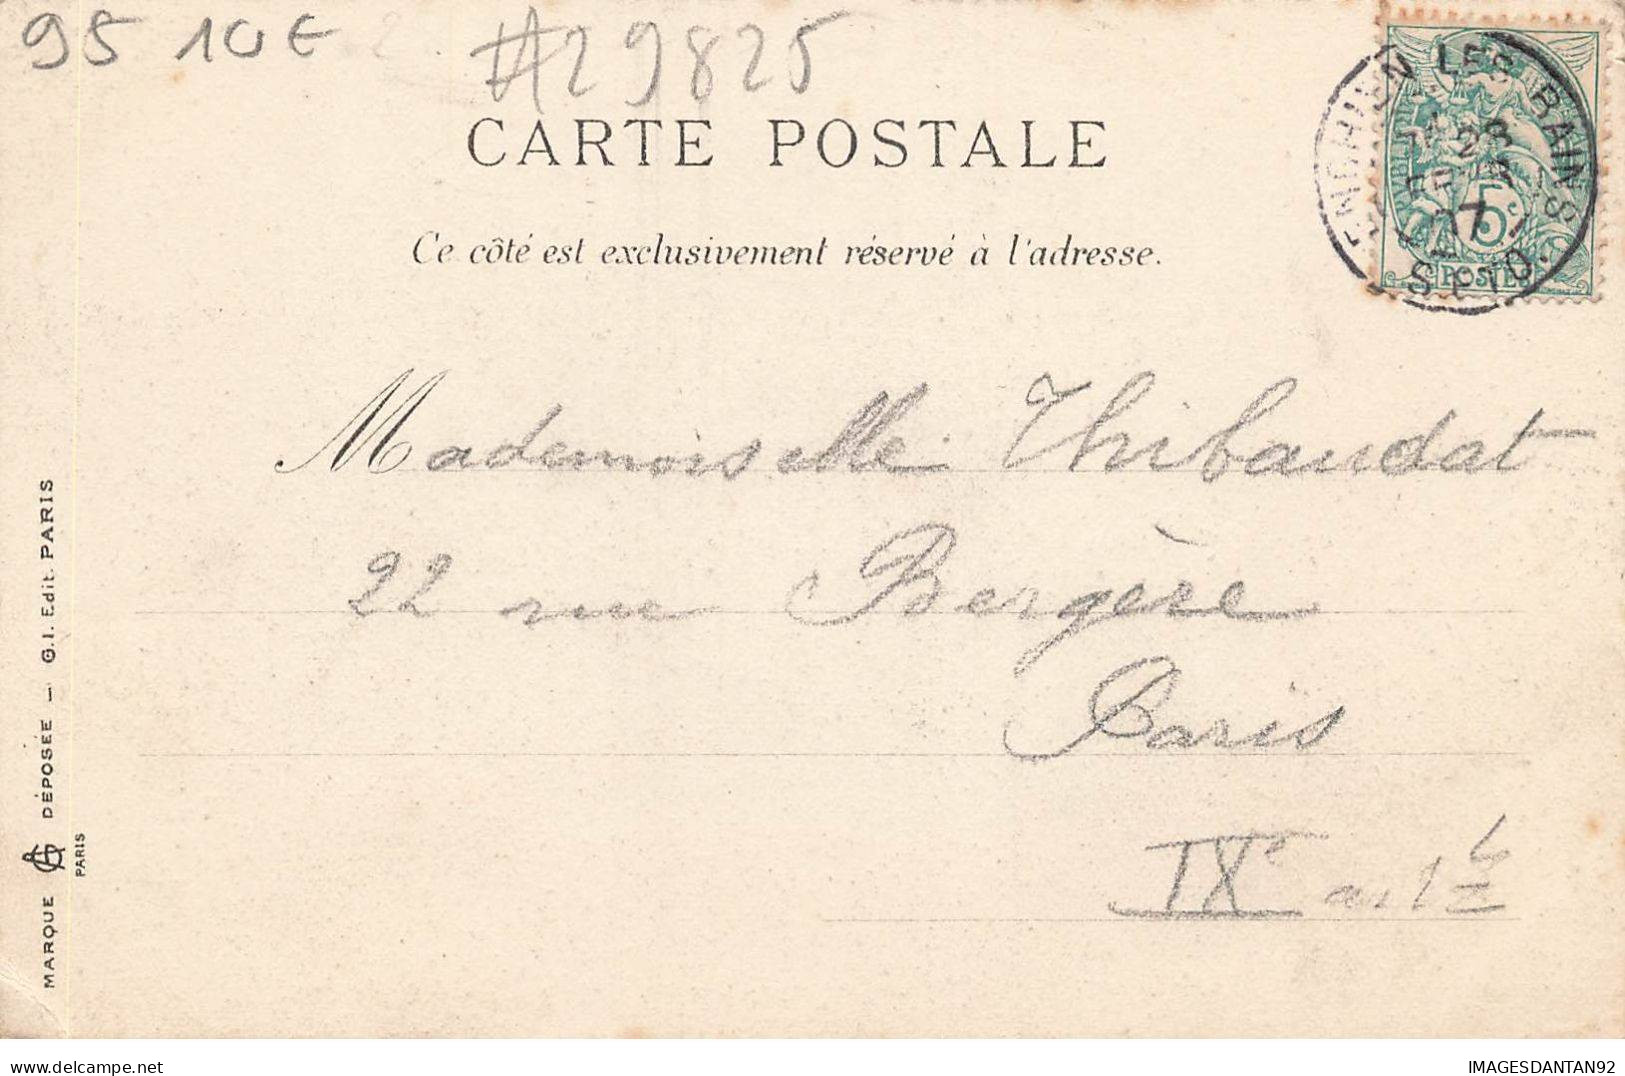 95 10€ #29825
CARTE POSTALE
Ce côté est exclusivement réservé à l'adresse.
ENGHIEN LES BAINS
28
07
S. & O.
5
POSTES
Mademoiselle Thibaudat
22 rue Bergère
Paris
IXe arrt
MARQUE DÉPOSÉE — G.I. Edit. PARIS
PARIS
IMAGESDANTAN92